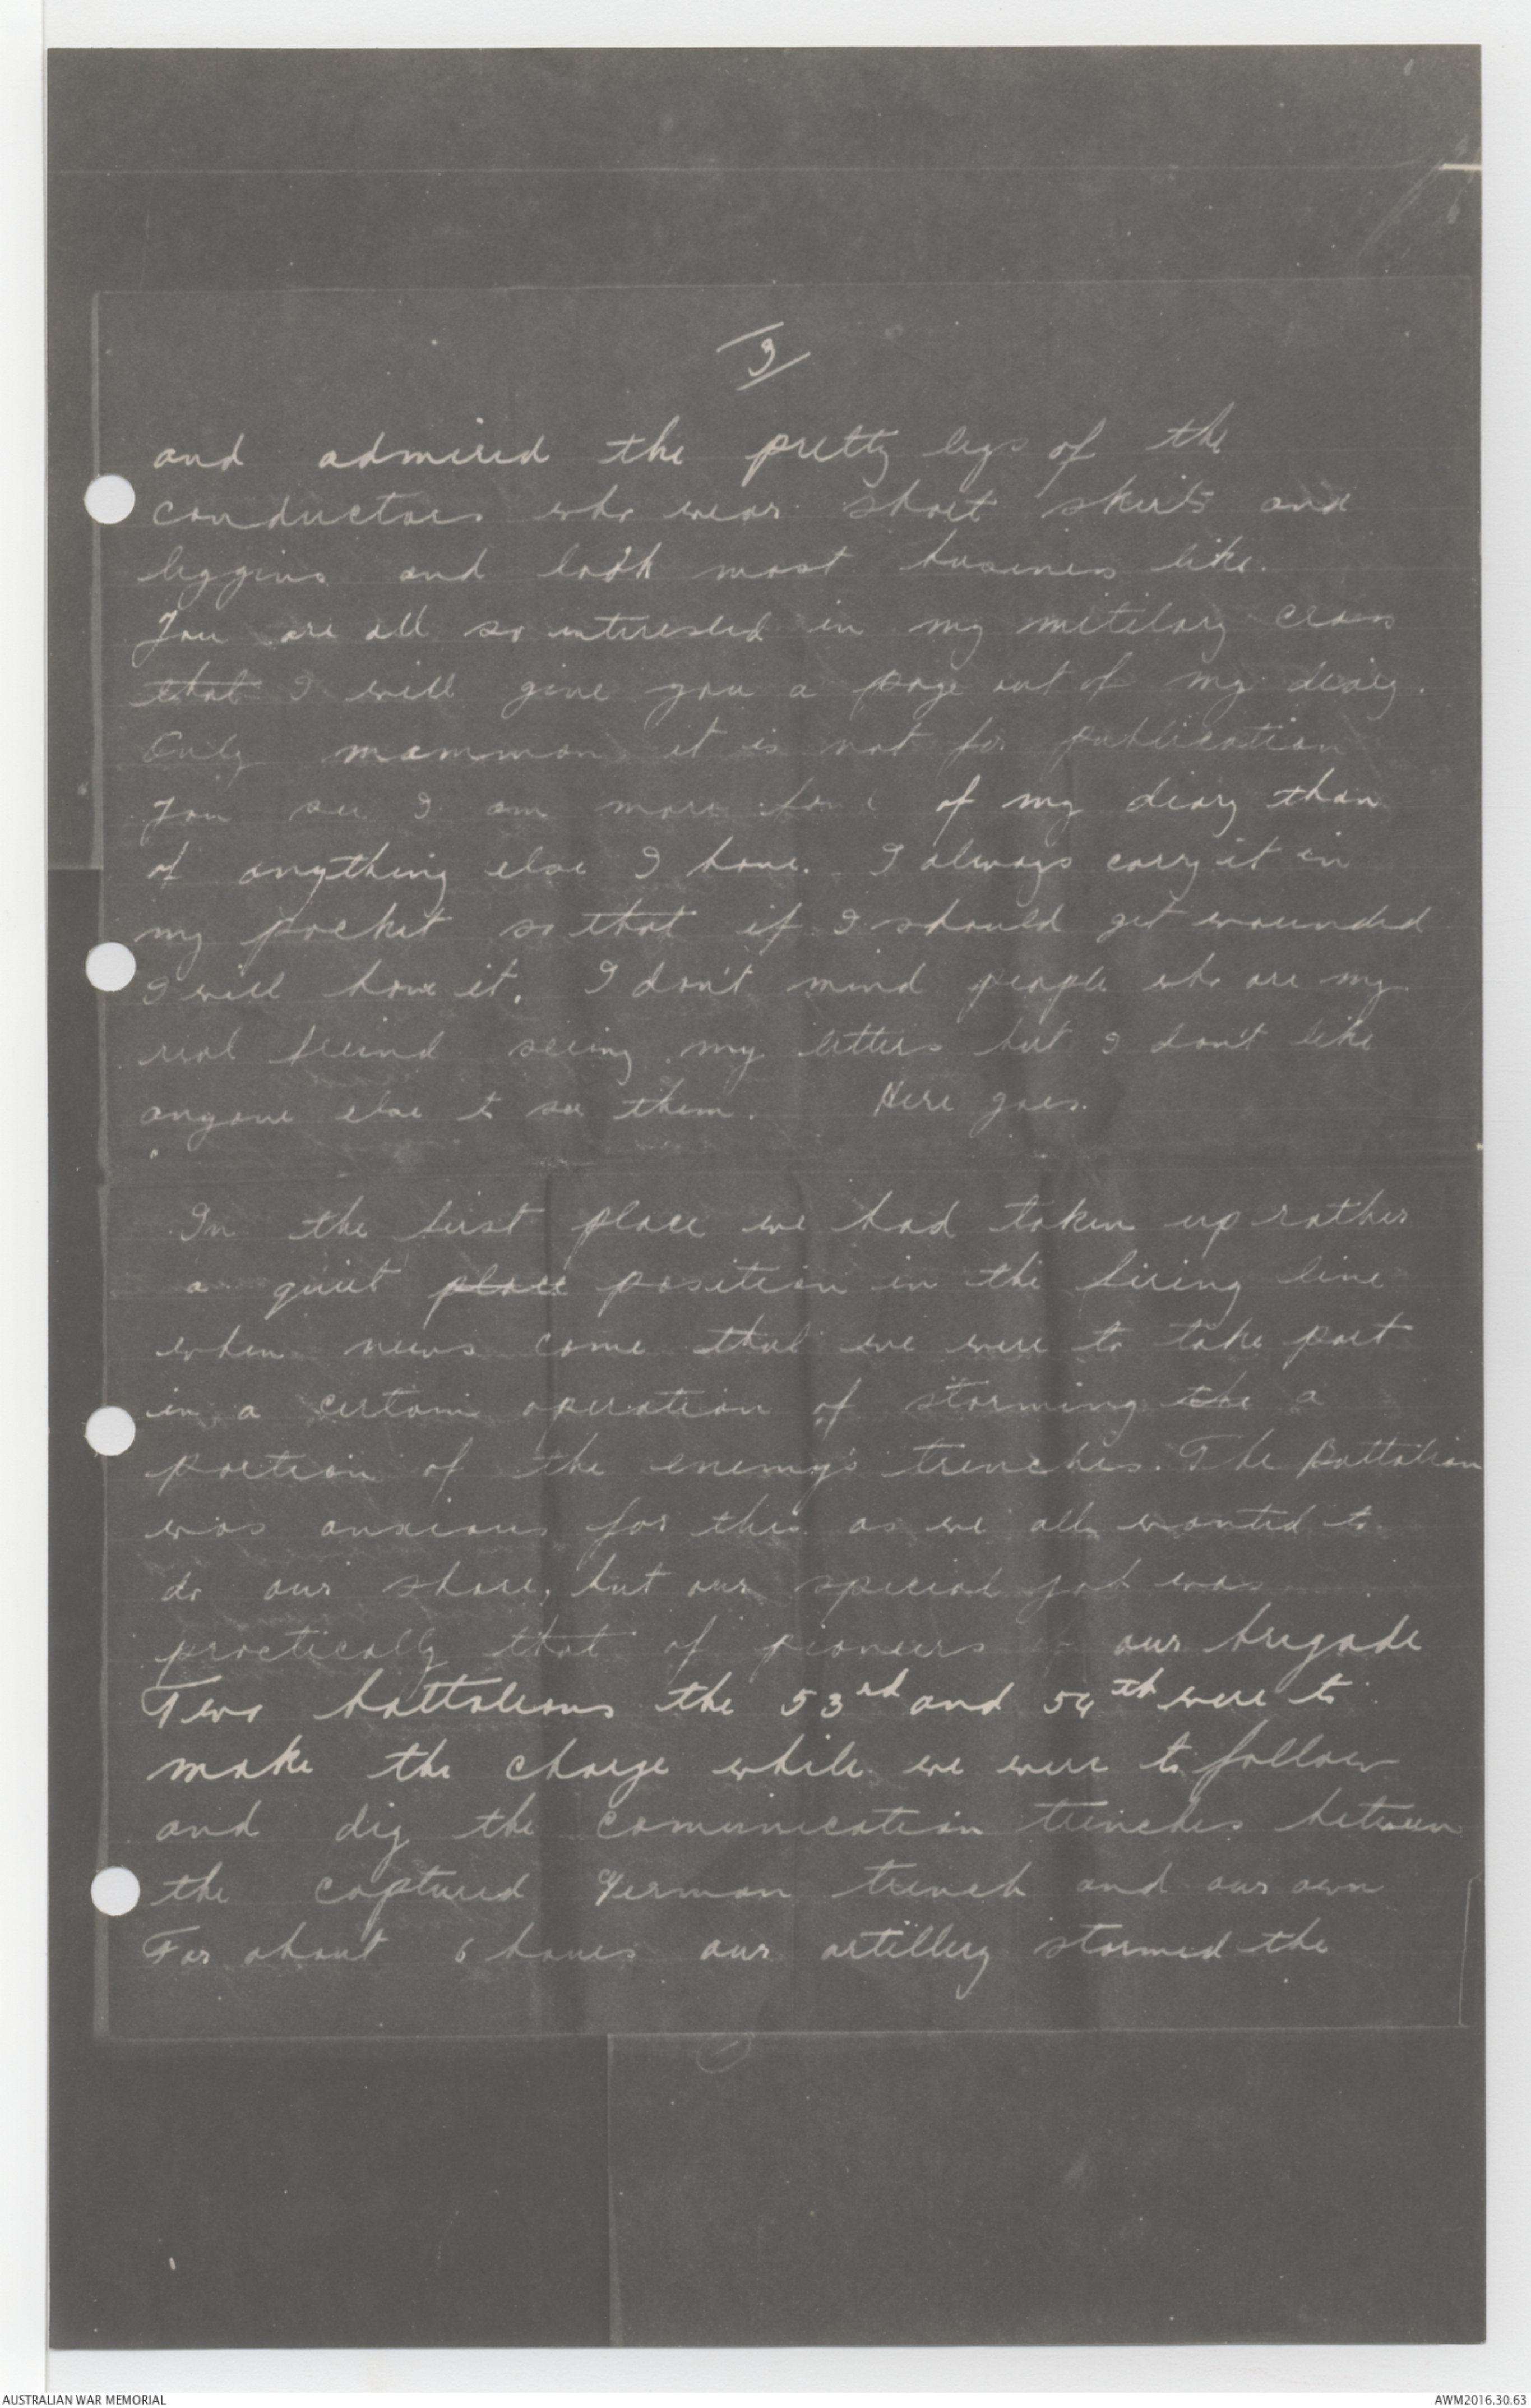 3
and admired the pretty legs of the
conductors who wear short skirts and
leggins and look most business like.
You are all so interested in my mitilary cross
that I will give you a page out of my diary.
Only mamman it is not for publication
You see I am more fond of my diary than
of anything else I have. I always carry it in
my pocket so that if I should get wounded
I will have it. I don't mind people who are my
real friend seeing my letters but I don't like
anyone else to see them. Here goes.
"
In the first place we had taken up rather
a quiet place position in the firing line
when news came that we were to take part
in a certain operation of storming the a
portion of the enemy's trenches. The Battalion
was anxious for this as we all wanted to
do our share, but our special job was
practically that of pioneers of our brigade
Two battalions the 53rd and 54th were to
make the charge while we were to follow
and dig the comunication trenches between
the captured German trench and our own
For about 6 hours our artillery stormed the
AUSTRALIAN WAR MEMORIAL
AWM2016.30.63